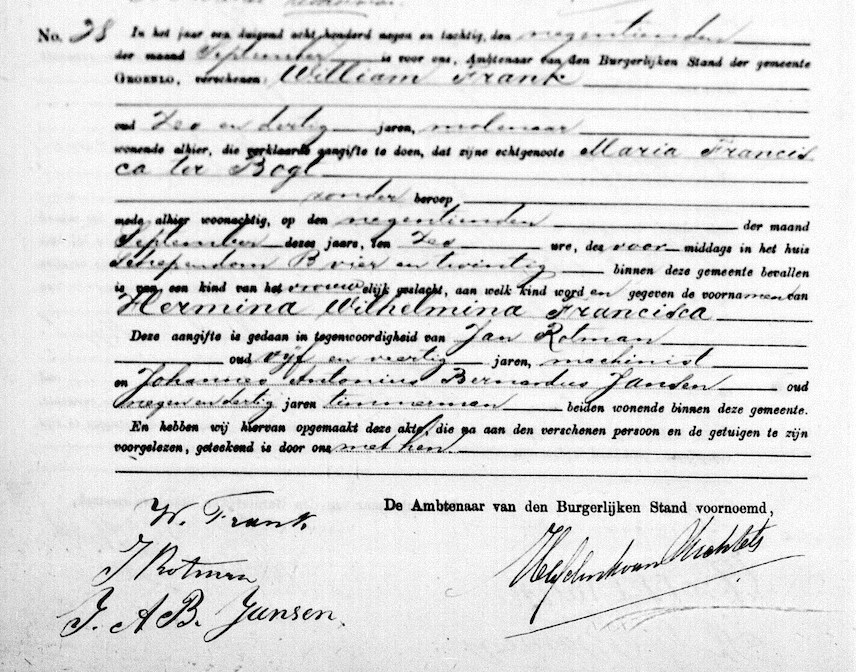 No. 28 In het jaar een duizend acht honderd negen en tachtig, den negentienden
der maand September is voor ons, Ambtenaar van den Burgerlijken Stand der gemeente
GROENLO, verschenen: William Frank
oud Zes en dertig jaren, molenaar
wonende alhier, die verklaarde aangifte te doen, dat zijne echtgenoote Maria Francis
ca ter Bogt
zonder beroep
mede alhier woonachtig, op den negentienden der maand
September dezes jaars, ten Zes ure, des voor middags in het huis
Schependom B vier en twintig binnen deze gemeente bevallen
is van een kind van het vrouwelijk geslacht, aan welk kind word en gegeven de voornamen van
Hermina Wilhelmina Francisca
Deze aangifte is gedaan in tegenwoordigheid van Jan Rotman
oud vijf en veertig jaren, machinist
en Johannes Antonius Bernardus Jansen oud
negen en dertig jaren timmerman beiden wonende binnen deze gemeente.
En hebben wij hiervan opgemaakt deze akte, die na aan den verschenen persoon en de getuigen te zijn
voorgelezen, geteekend is door ons met hen.
De Ambtenaar van den Burgerlijken Stand voornoemd,
W. Frank
J Rotman
J. A B. Jansen.